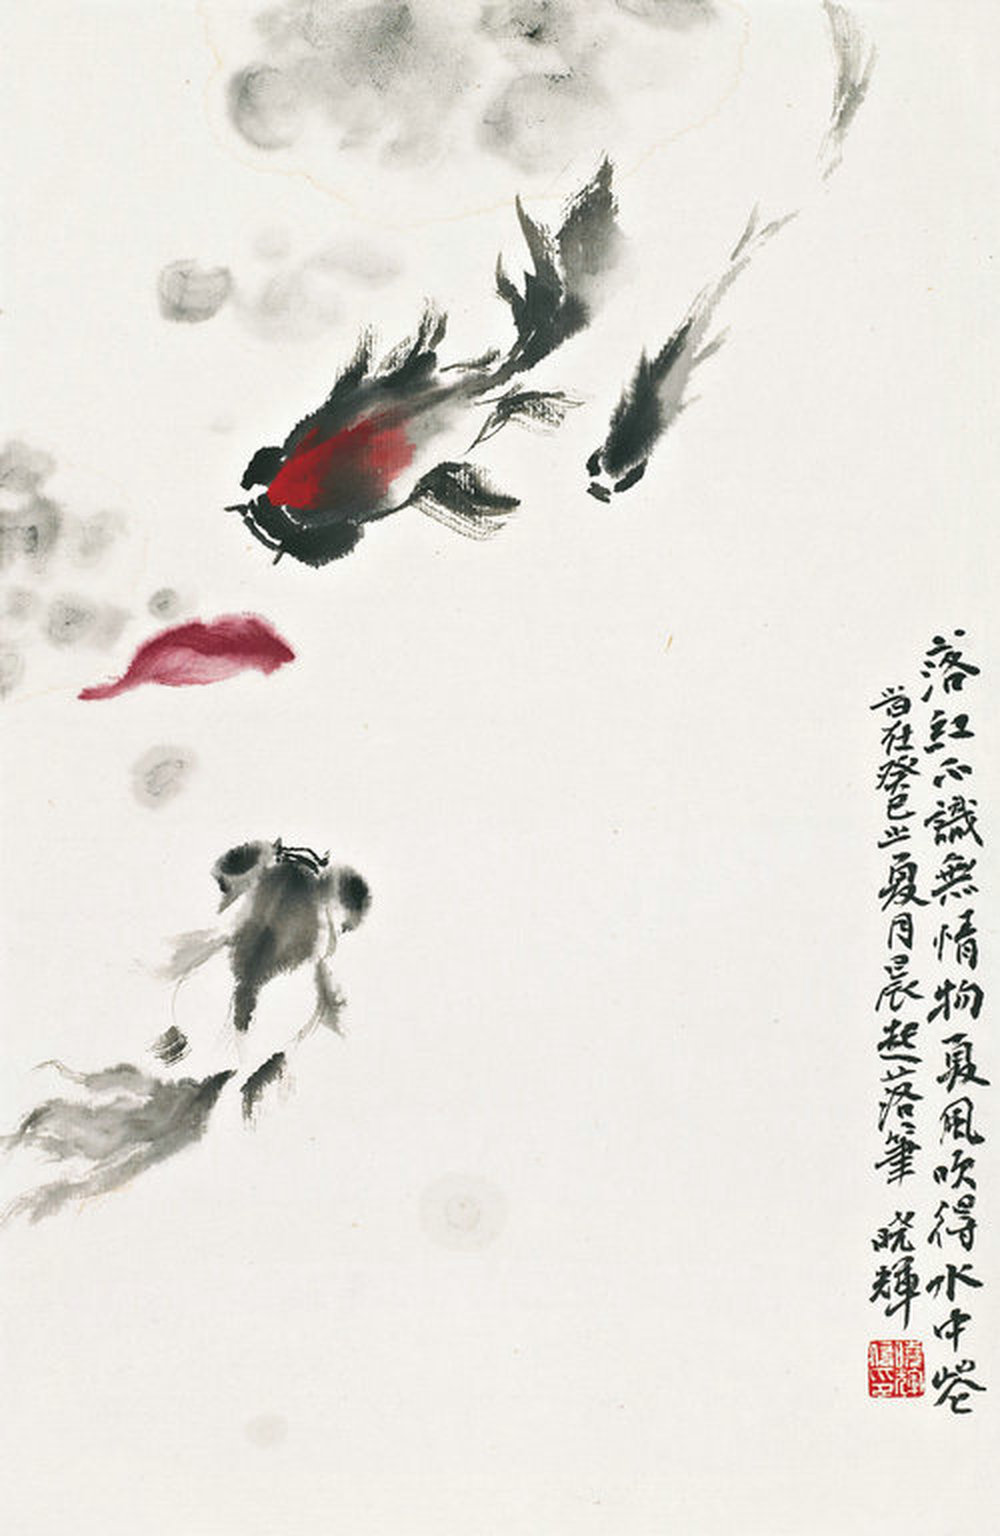 落紅不識無情物夏風吹得水中
旹在癸巳之夏月晨起落筆 晓輝